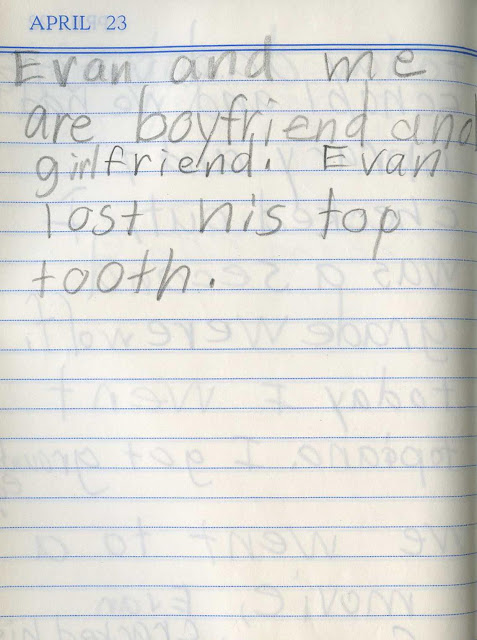 APRIL 23
Evan and me
are boyfriend and
girlfriend. Evan
lost his top
tooth.